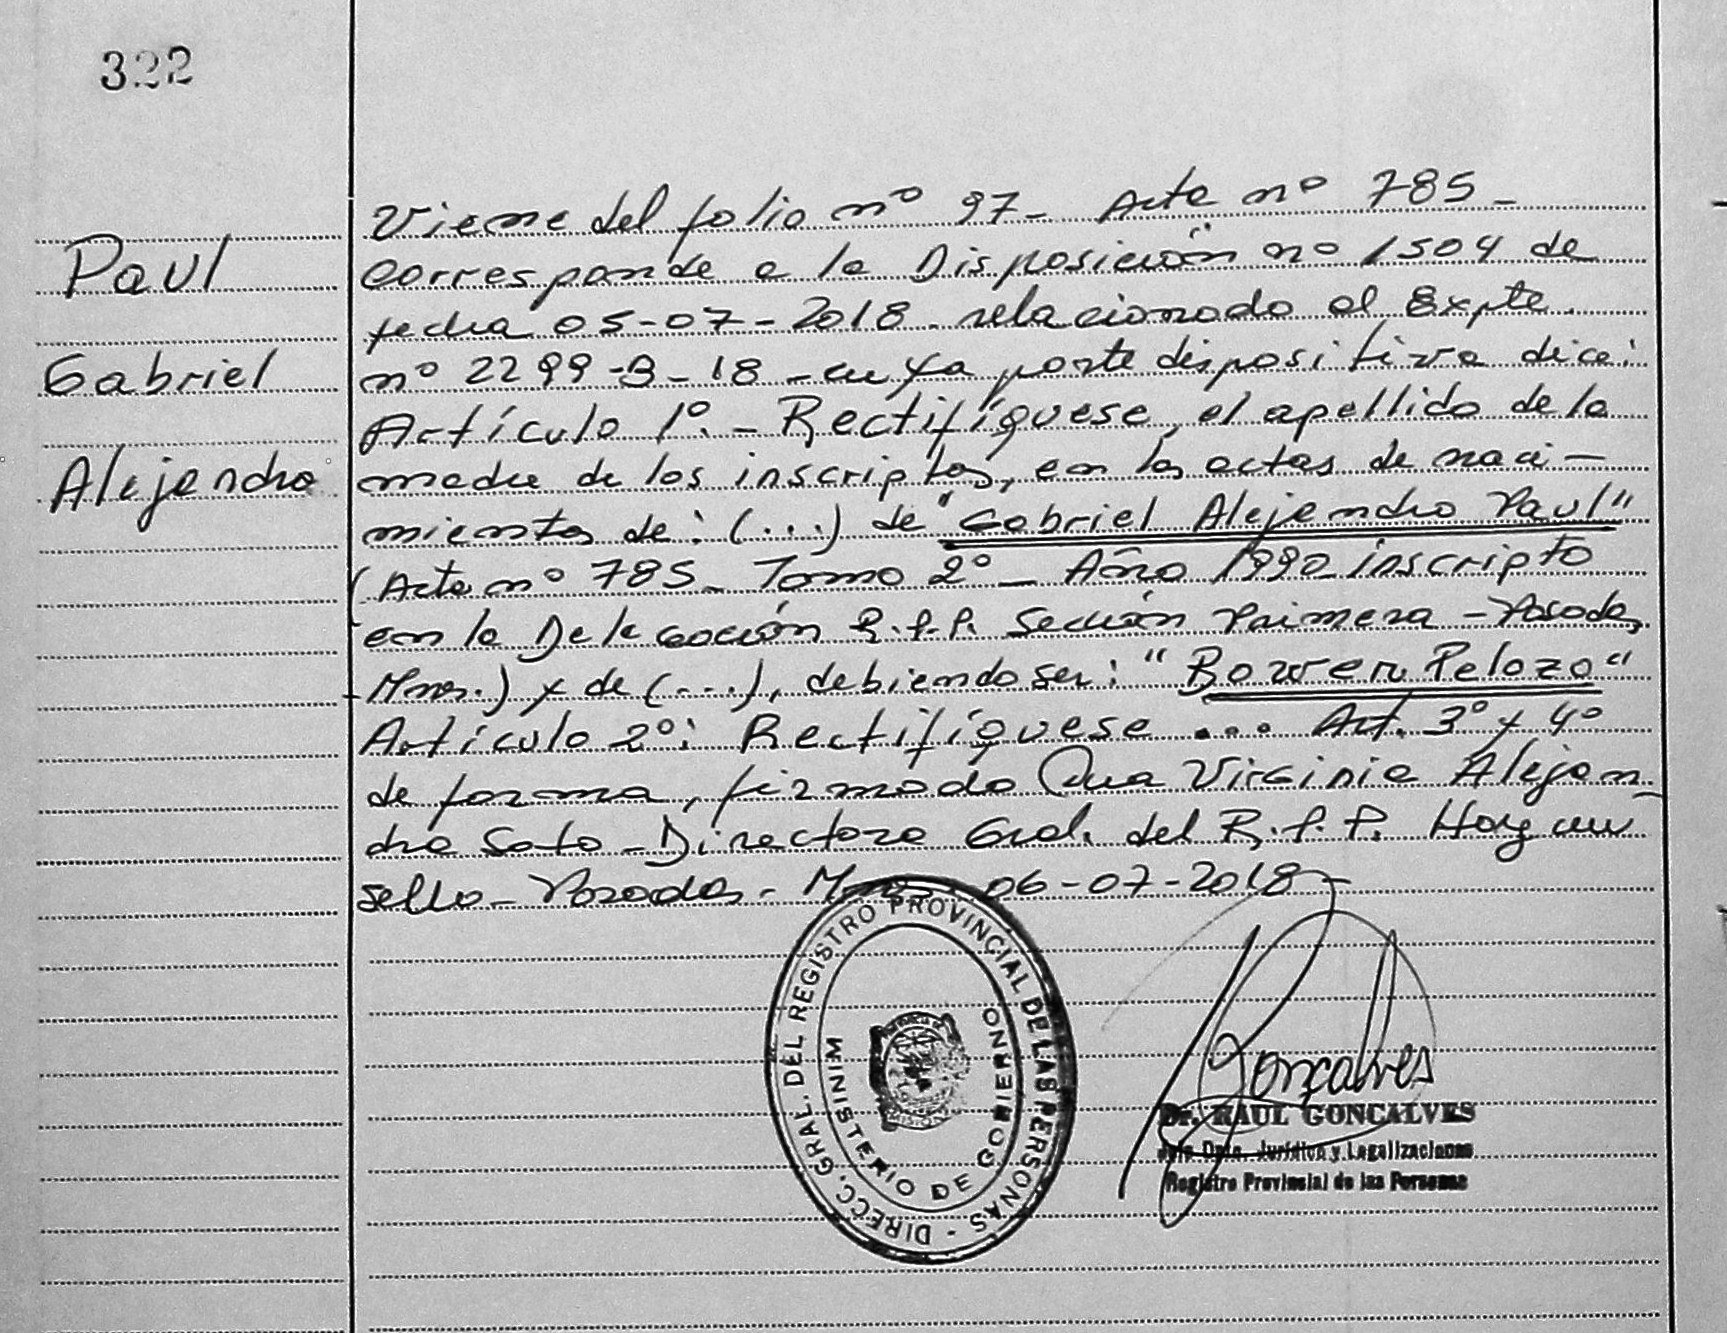 322
Viene del folio nº 97- Acta nº 785-
Corresponde a la Disposición nº 1504 de
fecha 05-07-2018 relacionado al Expte.
nº 2299-B-18 -cuya parte dispositiva dice:
Artículo 1º.- Rectifíquese, el apellido de la
madre de los inscriptos, en las actas de naci-
mientos de: (...) de "Gabriel Alejandro Paul"
(Acta nº 785- Tomo 2º- Año 1990 inscripto
en la Delegación R.P.P. Sección Primera - Posadas,
Mnes.) y de (...), debiendo ser: "Bowen Pelozo"
Artículo 2º: Rectifíquese ... Art. 3º y 4º
de forma, firmado Dra Virginia Alejan-
dra Soto - Directora Gral. del R.P.P. Hay un
sello- Posadas- Mnes. 06-07-2018-
Paul
Gabriel
Alejandro
DIRECC. GRAL. DEL REGISTRO PROVINCIAL DE LAS PERSONAS -
MINISTERIO DE GOBIERNO
MISIONES
Gonçalves
Dr. RAUL GONCALVES
Jefe Dpto. Jurídico y Legalizaciones
Registro Provincial de las Personas